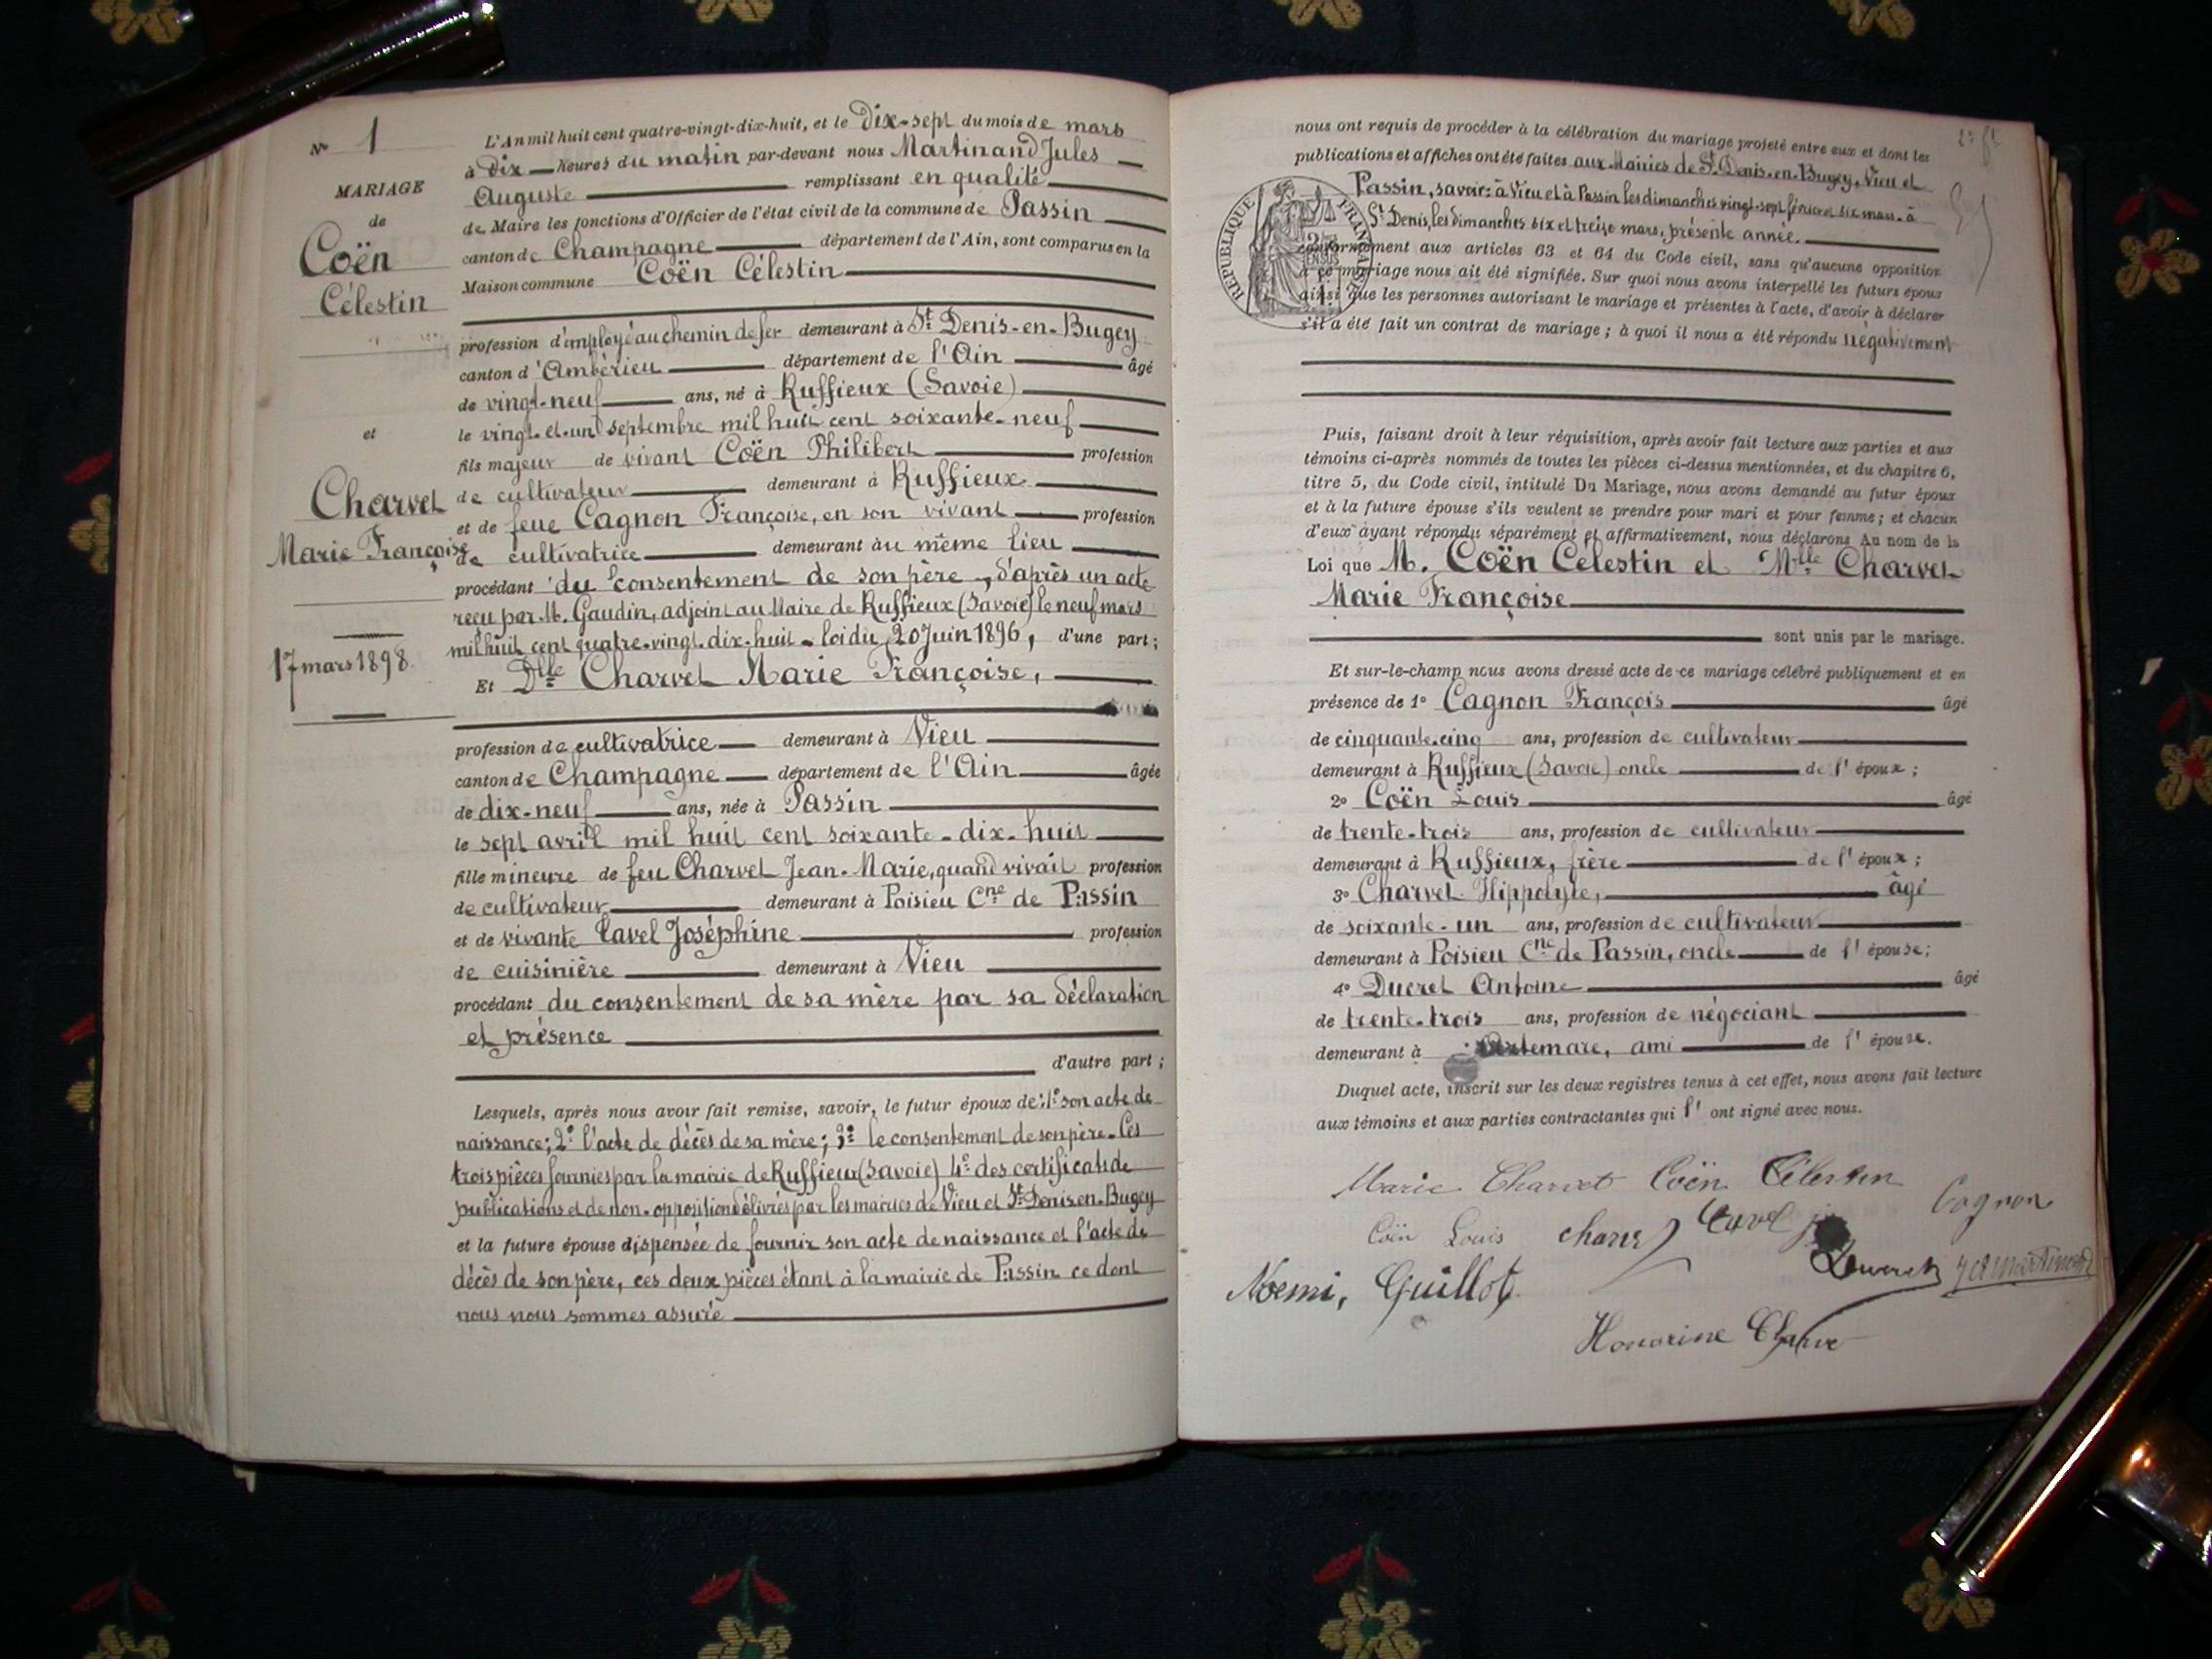 N° 1
MARIAGE
de
Coën
Célestin
et
Charvet
Marie Françoise
17 mars 1898.
L'An mil huit cent quatre-vingt-dix-huit, et le Dix-sept du mois de mars
à Dix heures du matin par-devant nous Martinand Jules
Auguste remplissant en qualité
de Maire les fonctions d'Officier de l'état civil de la commune de Passin
canton de Champagne département de l'Ain, sont comparus en la
Maison commune Coën Célestin
profession d'employé au chemin de fer demeurant à St Denis-en-Bugey
canton d'Ambérieu département de l'Ain âgé
de vingt-neuf ans, né à Ruffieux (Savoie)
le vingt-et-un septembre mil huit cent soixante-neuf
fils majeur de vivant Coën Philibert profession
de cultivateur demeurant à Ruffieux
et de feue Cagnon Françoise, en son vivant profession
de cultivatrice demeurant au même lieu
procédant du consentement de son père, d'après un acte
reçu par M. Gaudin, adjoint au Maire de Ruffieux (Savoie) le neuf mars
mil huit cent quatre-vingt-dix-huit - loi du 20 Juin 1896, d'une part;
Et Dlle Charvet Marie Françoise,
profession de cultivatrice demeurant à Vieu
canton de Champagne département de l'Ain âgée
de dix-neuf ans, née à Passin
le sept avril mil huit cent soixante-dix-huit
fille mineure de feu Charvet Jean-Marie, quand vivait profession
de cultivateur demeurant à Poisieu Cne de Passin
et de vivante Cavel Joséphine profession
de cuisinière demeurant à Vieu
procédant du consentement de sa mère par sa déclaration
et présence
d'autre part;
Lesquels, après nous avoir fait remise, savoir, le futur époux de: 1° son acte de
naissance; 2° l'acte de décès de sa mère; 3° le consentement de son père. Ces
trois pièces fournies par la mairie de Ruffieux (Savoie) 4° des certificats de
publications et de non-opposition délivrés par les mairies de Vieu et St Denis-en-Bugey
et la future épouse dispensée de fournir son acte de naissance et l'acte de
décès de son père, ces deux pièces étant à la mairie de Passin ce dont
nous nous sommes assuré
nous ont requis de procéder à la célébration du mariage projeté entre eux et dont les
publications et affiches ont été faites aux Mairies de St Denis-en-Bugey, Vieu et
Passin, savoir: à Vieu et à Passin les dimanches vingt-sept février et six mars - à
St Denis, les dimanches six et treize mars, présente année.
RÉPUBLIQUE FRANÇAISE
conformément aux articles 63 et 64 du Code civil, sans qu'aucune opposition
à ce mariage nous ait été signifiée. Sur quoi nous avons interpellé les futurs époux
ainsi que les personnes autorisant le mariage et présentes à l'acte, d'avoir à déclarer
s'il a été fait un contrat de mariage; à quoi il nous a été répondu négativement
Puis, faisant droit à leur réquisition, après avoir fait lecture aux parties et aux
témoins ci-après nommés de toutes les pièces ci-dessus mentionnées, et du chapitre 6,
titre 5, du Code civil, intitulé Du Mariage, nous avons demandé au futur époux
et à la future épouse s'ils veulent se prendre pour mari et pour femme; et chacun
d'eux ayant répondu séparément et affirmativement, nous déclarons Au nom de la
Loi que M. Coën Célestin et Mlle Charvet
Marie Françoise
sont unis par le mariage.
Et sur-le-champ nous avons dressé acte de ce mariage célébré publiquement et en
présence de 1° Cagnon François âgé
de cinquante-cinq ans, profession de cultivateur
demeurant à Ruffieux (Savoie) oncle de l'époux;
2° Coën Louis âgé
de trente-trois ans, profession de cultivateur
demeurant à Ruffieux, frère de l'époux;
3° Charvet Hippolyte, âgé
de soixante-un ans, profession de cultivateur
demeurant à Poisieu Cne de Passin, oncle de l'épouse;
4° Ducret Antoine âgé
de trente-trois ans, profession de négociant
demeurant à Artemare, ami de l'épouse.
Duquel acte, inscrit sur les deux registres tenus à cet effet, nous avons fait lecture
aux témoins et aux parties contractantes qui l'ont signé avec nous.
Marie Charvet Coën Célestin
Cagnon
Coën Louis Cavel
Ducret
Noemi, Guillot
Honorine